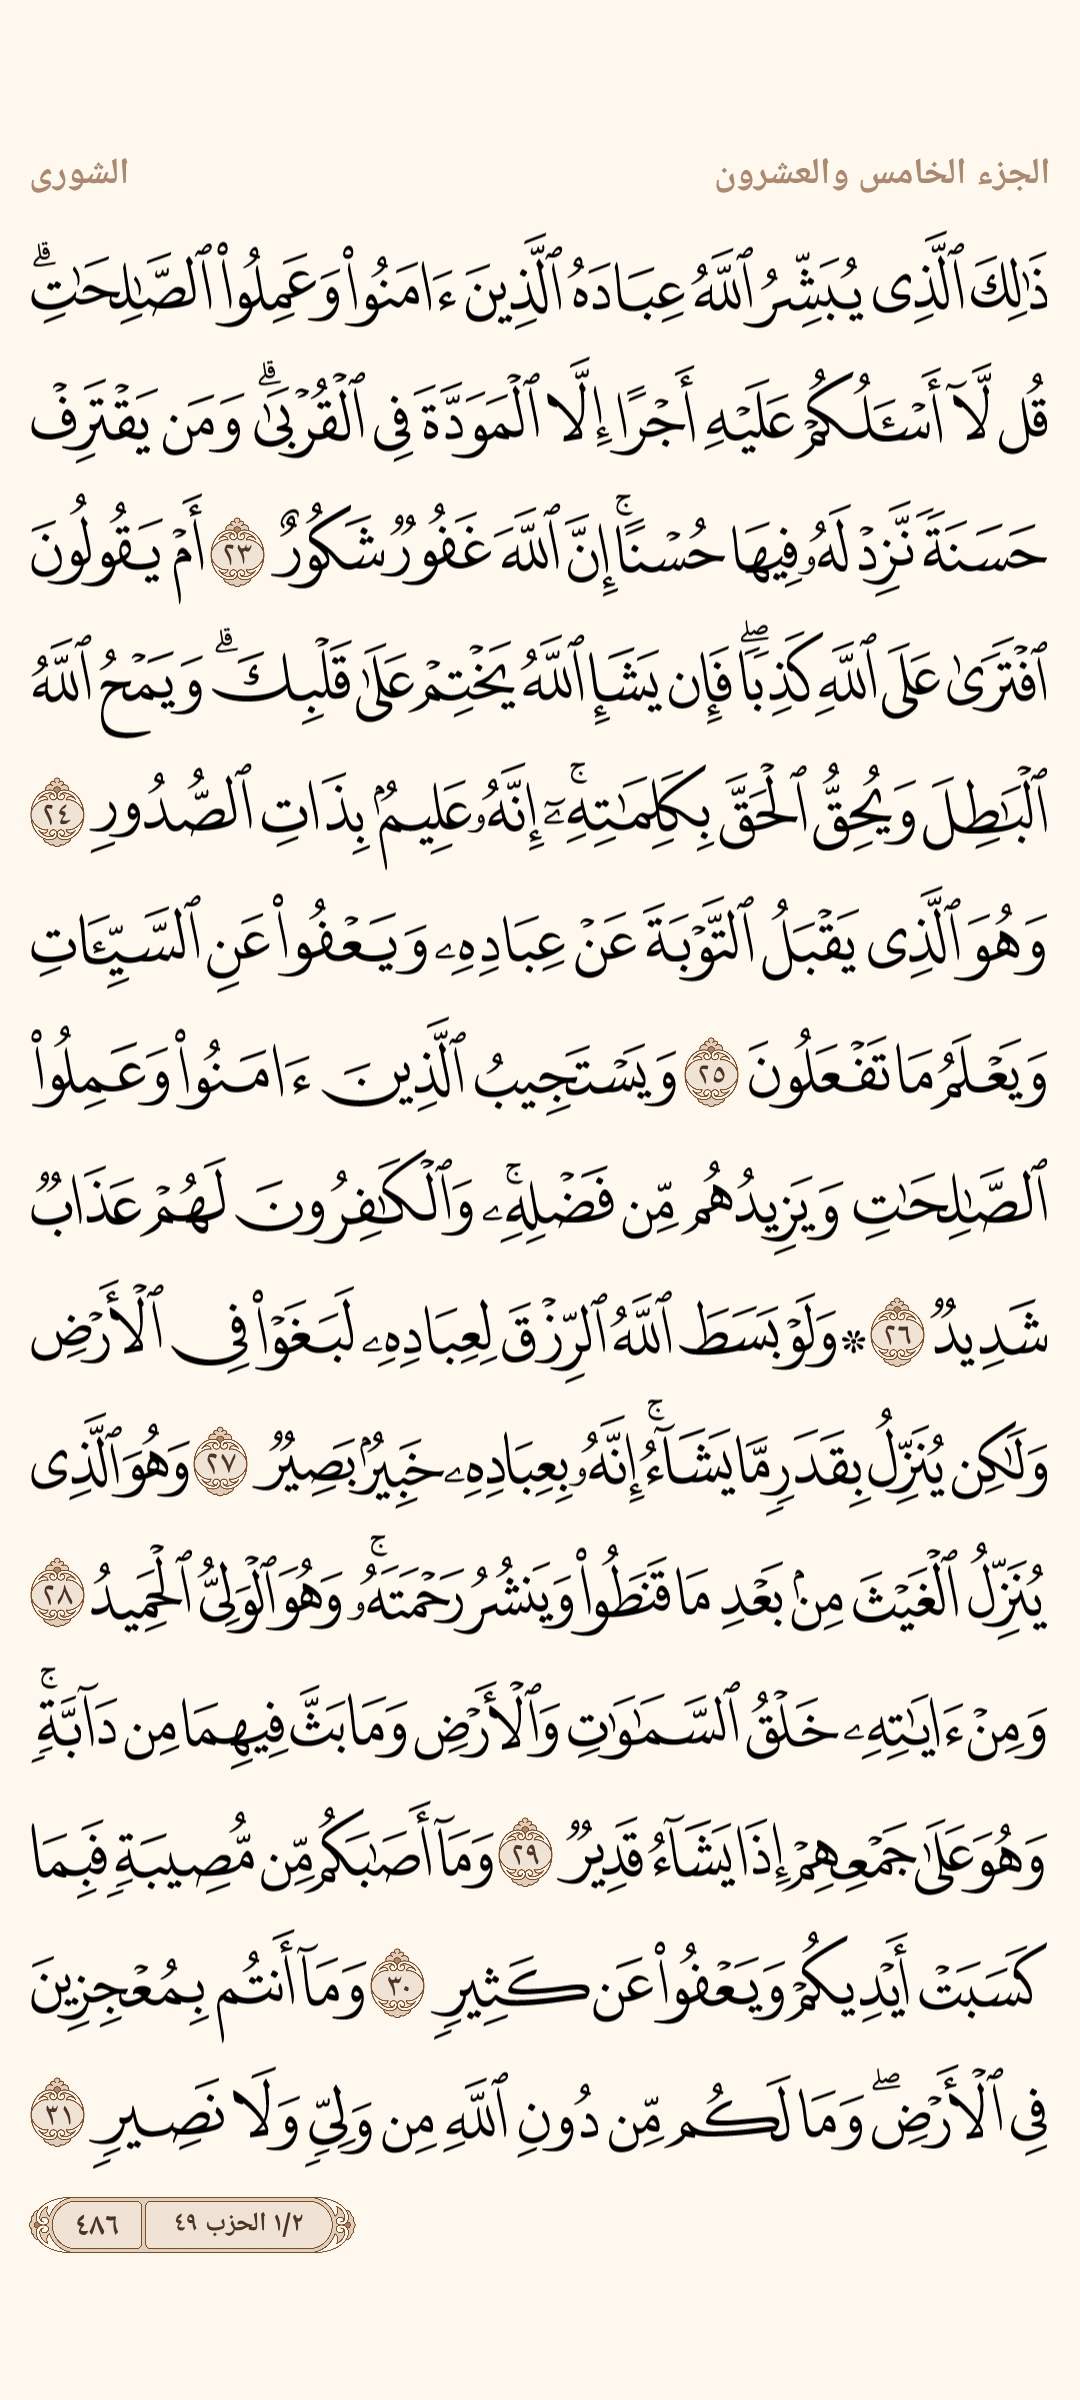 الجزء الخامس والعشرون
الشورى
ذَٰلِكَ ٱلَّذِى يُبَشِّرُ ٱللَّهُ عِبَادَهُ ٱلَّذِينَ ءَامَنُوا۟ وَعَمِلُوا۟ ٱلصَّٰلِحَٰتِ ۗ
قُل لَّآ أَسْـَٔلُكُمْ عَلَيْهِ أَجْرًا إِلَّا ٱلْمَوَدَّةَ فِى ٱلْقُرْبَىٰ ۗ وَمَن يَقْتَرِفْ
حَسَنَةً نَّزِدْ لَهُۥ فِيهَا حُسْنًا ۚ إِنَّ ٱللَّهَ غَفُورٌ شَكُورٌ ٢٣ أَمْ يَقُولُونَ
ٱفْتَرَىٰ عَلَى ٱللَّهِ كَذِبًا ۖ فَإِن يَشَإِ ٱللَّهُ يَخْتِمْ عَلَىٰ قَلْبِكَ ۗ وَيَمْحُ ٱللَّهُ
ٱلْبَٰطِلَ وَيُحِقُّ ٱلْحَقَّ بِكَلِمَٰتِهِۦٓ ۚ إِنَّهُۥ عَلِيمٌۢ بِذَاتِ ٱلصُّدُورِ ٢٤
وَهُوَ ٱلَّذِى يَقْبَلُ ٱلتَّوْبَةَ عَنْ عِبَادِهِۦ وَيَعْفُوا۟ عَنِ ٱلسَّيِّـَٔاتِ
وَيَعْلَمُ مَا تَفْعَلُونَ ٢٥ وَيَسْتَجِيبُ ٱلَّذِينَ ءَامَنُوا۟ وَعَمِلُوا۟
ٱلصَّٰلِحَٰتِ وَيَزِيدُهُم مِّن فَضْلِهِۦ ۚ وَٱلْكَٰفِرُونَ لَهُمْ عَذَابٌ
شَدِيدٌ ٢٦ ۞ وَلَوْ بَسَطَ ٱللَّهُ ٱلرِّزْقَ لِعِبَادِهِۦ لَبَغَوْا۟ فِى ٱلْأَرْضِ
وَلَٰكِن يُنَزِّلُ بِقَدَرٍ مَّا يَشَآءُ ۚ إِنَّهُۥ بِعِبَادِهِۦ خَبِيرٌۢ بَصِيرٌ ٢٧ وَهُوَ ٱلَّذِى
يُنَزِّلُ ٱلْغَيْثَ مِنۢ بَعْدِ مَا قَنَطُوا۟ وَيَنشُرُ رَحْمَتَهُۥ ۚ وَهُوَ ٱلْوَلِىُّ ٱلْحَمِيدُ ٢٨
وَمِنْ ءَايَٰتِهِۦ خَلْقُ ٱلسَّمَٰوَٰتِ وَٱلْأَرْضِ وَمَا بَثَّ فِيهِمَا مِن دَآبَّةٍ ۚ
وَهُوَ عَلَىٰ جَمْعِهِمْ إِذَا يَشَآءُ قَدِيرٌ ٢٩ وَمَآ أَصَٰبَكُم مِّن مُّصِيبَةٍ فَبِمَا
كَسَبَتْ أَيْدِيكُمْ وَيَعْفُوا۟ عَن كَثِيرٍ ٣٠ وَمَآ أَنتُم بِمُعْجِزِينَ
فِى ٱلْأَرْضِ ۖ وَمَا لَكُم مِّن دُونِ ٱللَّهِ مِن وَلِىٍّ وَلَا نَصِيرٍ ٣١
١/٢ الحزب ٤٩
٤٨٦